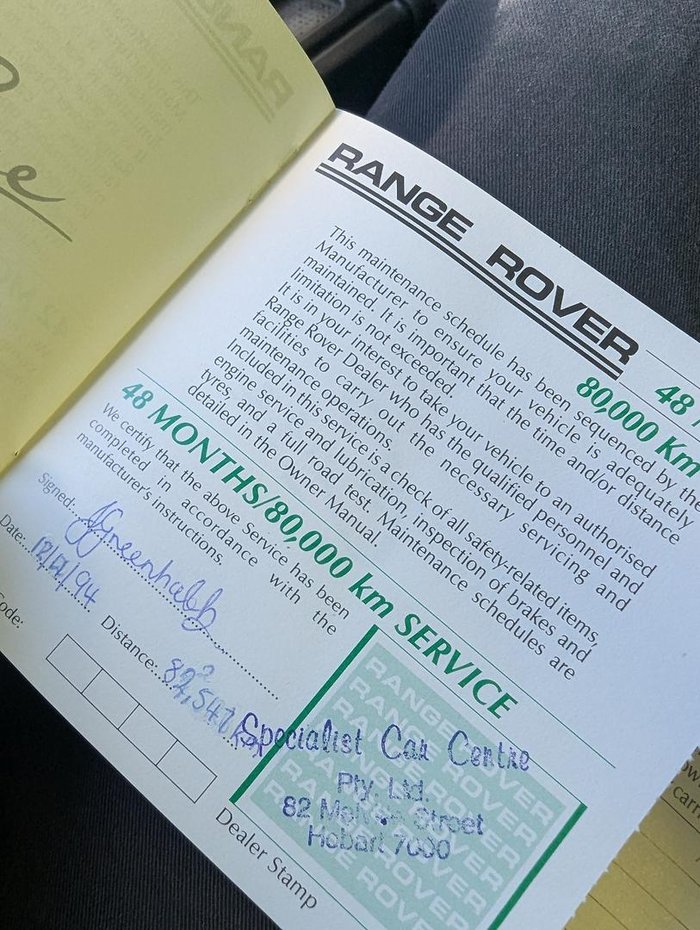 RANGE ROVER
This maintenance schedule has been sequenced by the
Manufacturer to ensure your vehicle is adequately
maintained. It is important that the time and/or distance
limitation is not exceeded.
It is in your interest to take your vehicle to an authorised
Range Rover Dealer who has the qualified personnel and
facilities to carry out the necessary servicing and
maintenance operations.
Included in this service is a check of all safety-related items,
engine service and lubrication, inspection of brakes and
tyres, and a full road test. Maintenance schedules are
detailed in the Owner Manual.
48
80,000 Km
48 MONTHS/80,000 km SERVICE
We certify that the above Service has been
completed in accordance with the
manufacturer's instructions.
Signed: Greenhalgh
Date: /94
Distance: 82,547
Code:
Dealer Stamp
Specialist Car Centre
Pty. Ltd.
82 Melville Street
Hobart 7000
RANGE ROVER